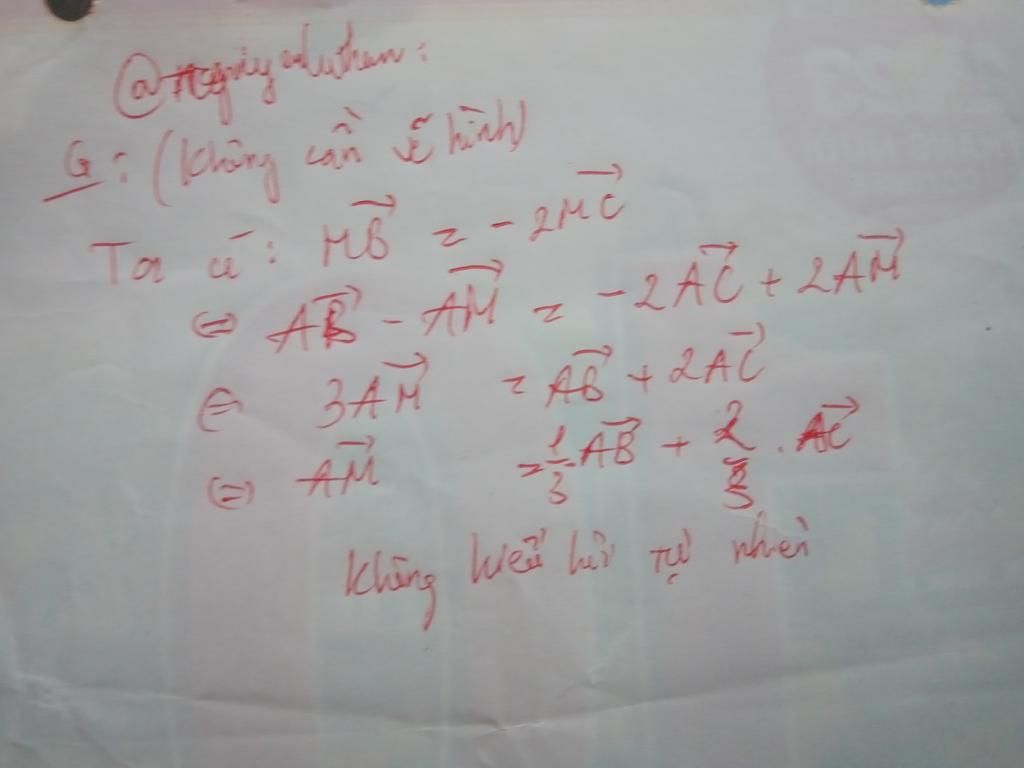 G: (Không cần vẽ hình)
Ta có: \overrightarrow{MB} = -2\overrightarrow{MC}
⇔ \overrightarrow{AB} - \overrightarrow{AM} = -2\overrightarrow{AC} + 2\overrightarrow{AM}
⇔ 3\overrightarrow{AM} = \overrightarrow{AB} + 2\overrightarrow{AC}
⇔ \overrightarrow{AM} = \frac{1}{3}\overrightarrow{AB} + \frac{2}{3} . \overrightarrow{AC}
Không hiểu hỏi tự nhiên